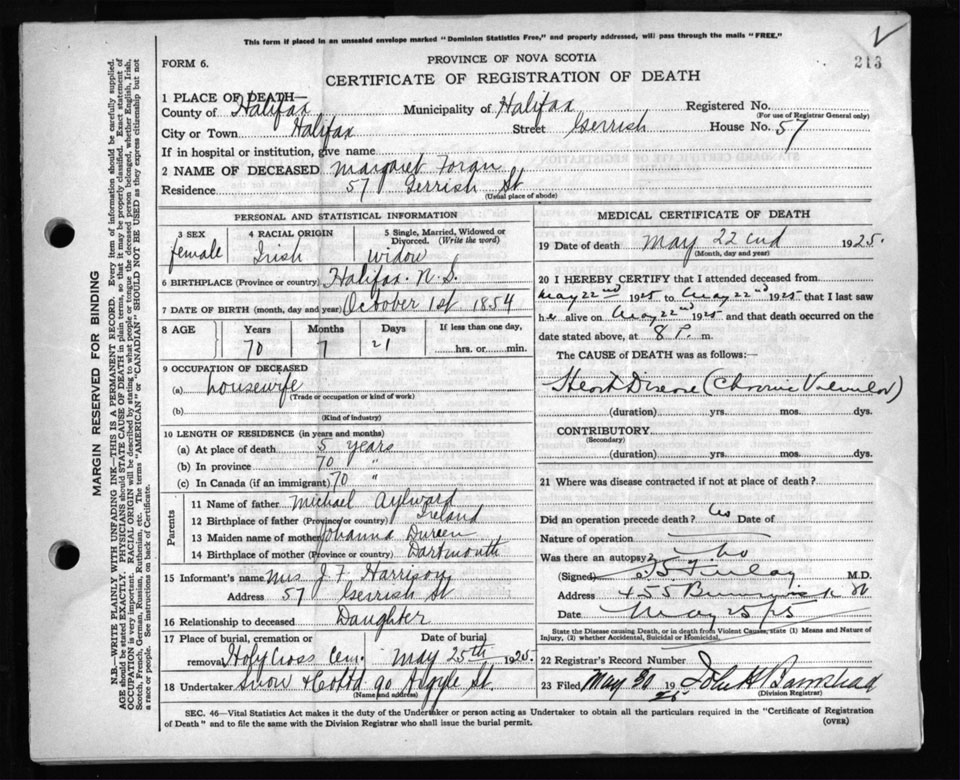 This form if placed in an unsealed envelope marked "Dominion Statistics Free," and property addressed, will pass through the mails "FREE."
213
FORM 6.
PROVINCE OF NOVA SCOTIA
CERTIFICATE OF REGISTRATION OF DEATH
1 PLACE OF DEATH—
County of Halifax Municipality of Halifax Registered No.
(For use of Registrar General only)
City or Town Halifax Street Gerrish House No. 57
If in hospital or institution, give name
2 NAME OF DECEASED Margaret Foran
Residence 57 Gerrish St
(Usual place of abode)
PERSONAL AND STATISTICAL INFORMATION
3 SEX 4 RACIAL ORIGIN 5 Single, Married, Widowed or Divorced. (Write the word)
female Irish widow
6 BIRTHPLACE (Province or country) Halifax. N.S.
7 DATE OF BIRTH (month, day and year) October 1st 1854
8 AGE Years Months Days If less than one day,
70 7 21 hrs. or min.
9 OCCUPATION OF DECEASED
(a) housewife
(Trade or occupation or kind of work)
(b)
(Kind of industry)
10 LENGTH OF RESIDENCE (in years and months)
(a) At place of death 5 years
(b) In province 70 "
(c) In Canada (if an immigrant) 70 "
Parents
11 Name of father Michael Aylward
12 Birthplace of father (Province or country) Ireland
13 Maiden name of mother Johanna
14 Birthplace of mother (Province or country) Dartmouth
15 Informant's name Mrs J. F. Harrison
Address 57 Gerrish St
16 Relationship to deceased Daughter
17 Place of burial, cremation or removal Date of burial
Holy Cross Cem. May 25th 1925.
18 Undertaker Snow & Co Ltd 90 Argyle St.
(Name and address)
MEDICAL CERTIFICATE OF DEATH
19 Date of death May 22nd 1925.
(Month, day and year)
20 I HEREBY CERTIFY that I attended deceased from
May 22nd 1925 to May 22nd 1925 that I last saw
her alive on May 22nd 1925 and that death occurred on the
date stated above, at 8 P. m.
The CAUSE of DEATH was as follows:—
Heart Disease (Chronic Valvular)
(duration) yrs. mos. dys.
CONTRIBUTORY
(Secondary)
(duration) yrs. mos. dys.
21 Where was disease contracted if not at place of death?
Did an operation precede death? No Date of
Nature of operation
Was there an autopsy? No
(Signed) Finlay M.D.
Address 455 St
Date May 25/25
State the Disease causing Death, or in death from Violent Causes, state (1) Means and Nature of Injury, (2) whether Accidental, Suicidal or Homicidal.
22 Registrar's Record Number
23 Filed May 30 1925 John H Barnstead
(Division Registrar)
SEC. 46—Vital Statistics Act makes it the duty of the Undertaker or person acting as Undertaker to obtain all the particulars required in the "Certificate of Registration
of Death" and to file the same with the Division Registrar who shall issue the burial permit.
(OVER)
MARGIN RESERVED FOR BINDING
N.B.—WRITE PLAINLY WITH UNFADING INK—THIS IS A PERMANENT RECORD. Every item of information should be carefully supplied.
AGE should be stated EXACTLY. PHYSICIANS should STATE CAUSE OF DEATH in plain terms, so that it may be properly classified. Exact statement of
OCCUPATION is very important. RACIAL ORIGIN will be described by stating to what people or tongue the deceased person belonged, whether English, Irish,
Scotch, French, German, Russian, Ruthenian, etc. The terms "AMERICAN" or "CANADIAN" SHOULD NOT BE USED as they express citizenship but not
a race or people. See instructions on back of Certificate.